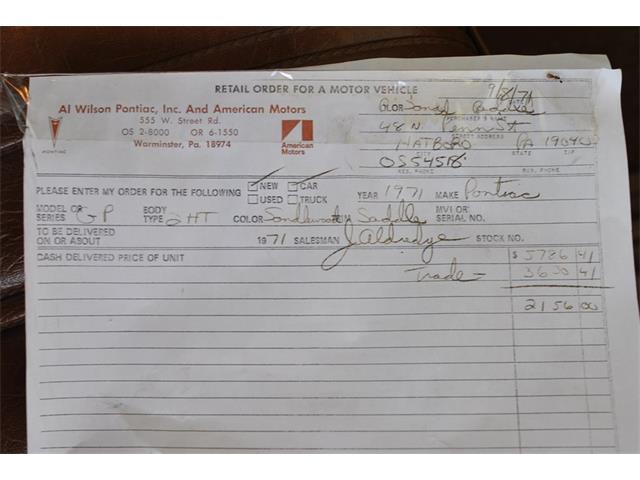 RETAIL ORDER FOR A MOTOR VEHICLE
9/8/71
Al Wilson Pontiac, Inc. And American Motors
555 W. Street Rd.
OS 2-8000 OR 6-1550
Warminster, Pa. 18974
PONTIAC
American Motors
DATE
PURCHASER'S NAME
48 N. Penn St
STREET ADDRESS
HATBORO PA 19040
CITY STATE ZIP
OS54518
RES. PHONE BUS. PHONE
PLEASE ENTER MY ORDER FOR THE FOLLOWING NEW CAR YEAR 1971 MAKE Pontiac
USED TRUCK
MODEL OR SERIES GP BODY TYPE 2HT COLOR Sandlewood TRIM Saddle MVI OR SERIAL NO.
TO BE DELIVERED ON OR ABOUT 1971 SALESMAN J Aldredge STOCK NO.
CASH DELIVERED PRICE OF UNIT $ 5786 41
Trade - 3630 41
2156 00